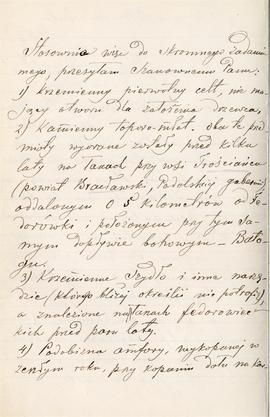 Stosownie więc do skromnego żądania
mego, przesyłam Szanownemu Panu:
1) Krzemienny pierwotny celt, nie ma-
jący otworu dla założenia drzewca.
2) Kamienny toporo-młot. Oba te przed-
mioty wyorane zostały przed kilku
laty na łanach przy wsi Trościańcu
(powiat Bracławski, Podolskiej gubernii)
oddalonym o 5 kilometrów od Fe-
dorówki i położonym przy tym sa-
mym dopływie bohowym – Bato-
gu.
3) Krzemienne Szydło i inne narzę-
dzie (którego bliżej określić nie potrafię),
a znalezione na łanach fedorowiec-
kich przed paru laty.
4) Podobizna amfory, wykopanej w
zeszłym roku, przy kopaniu dołu na